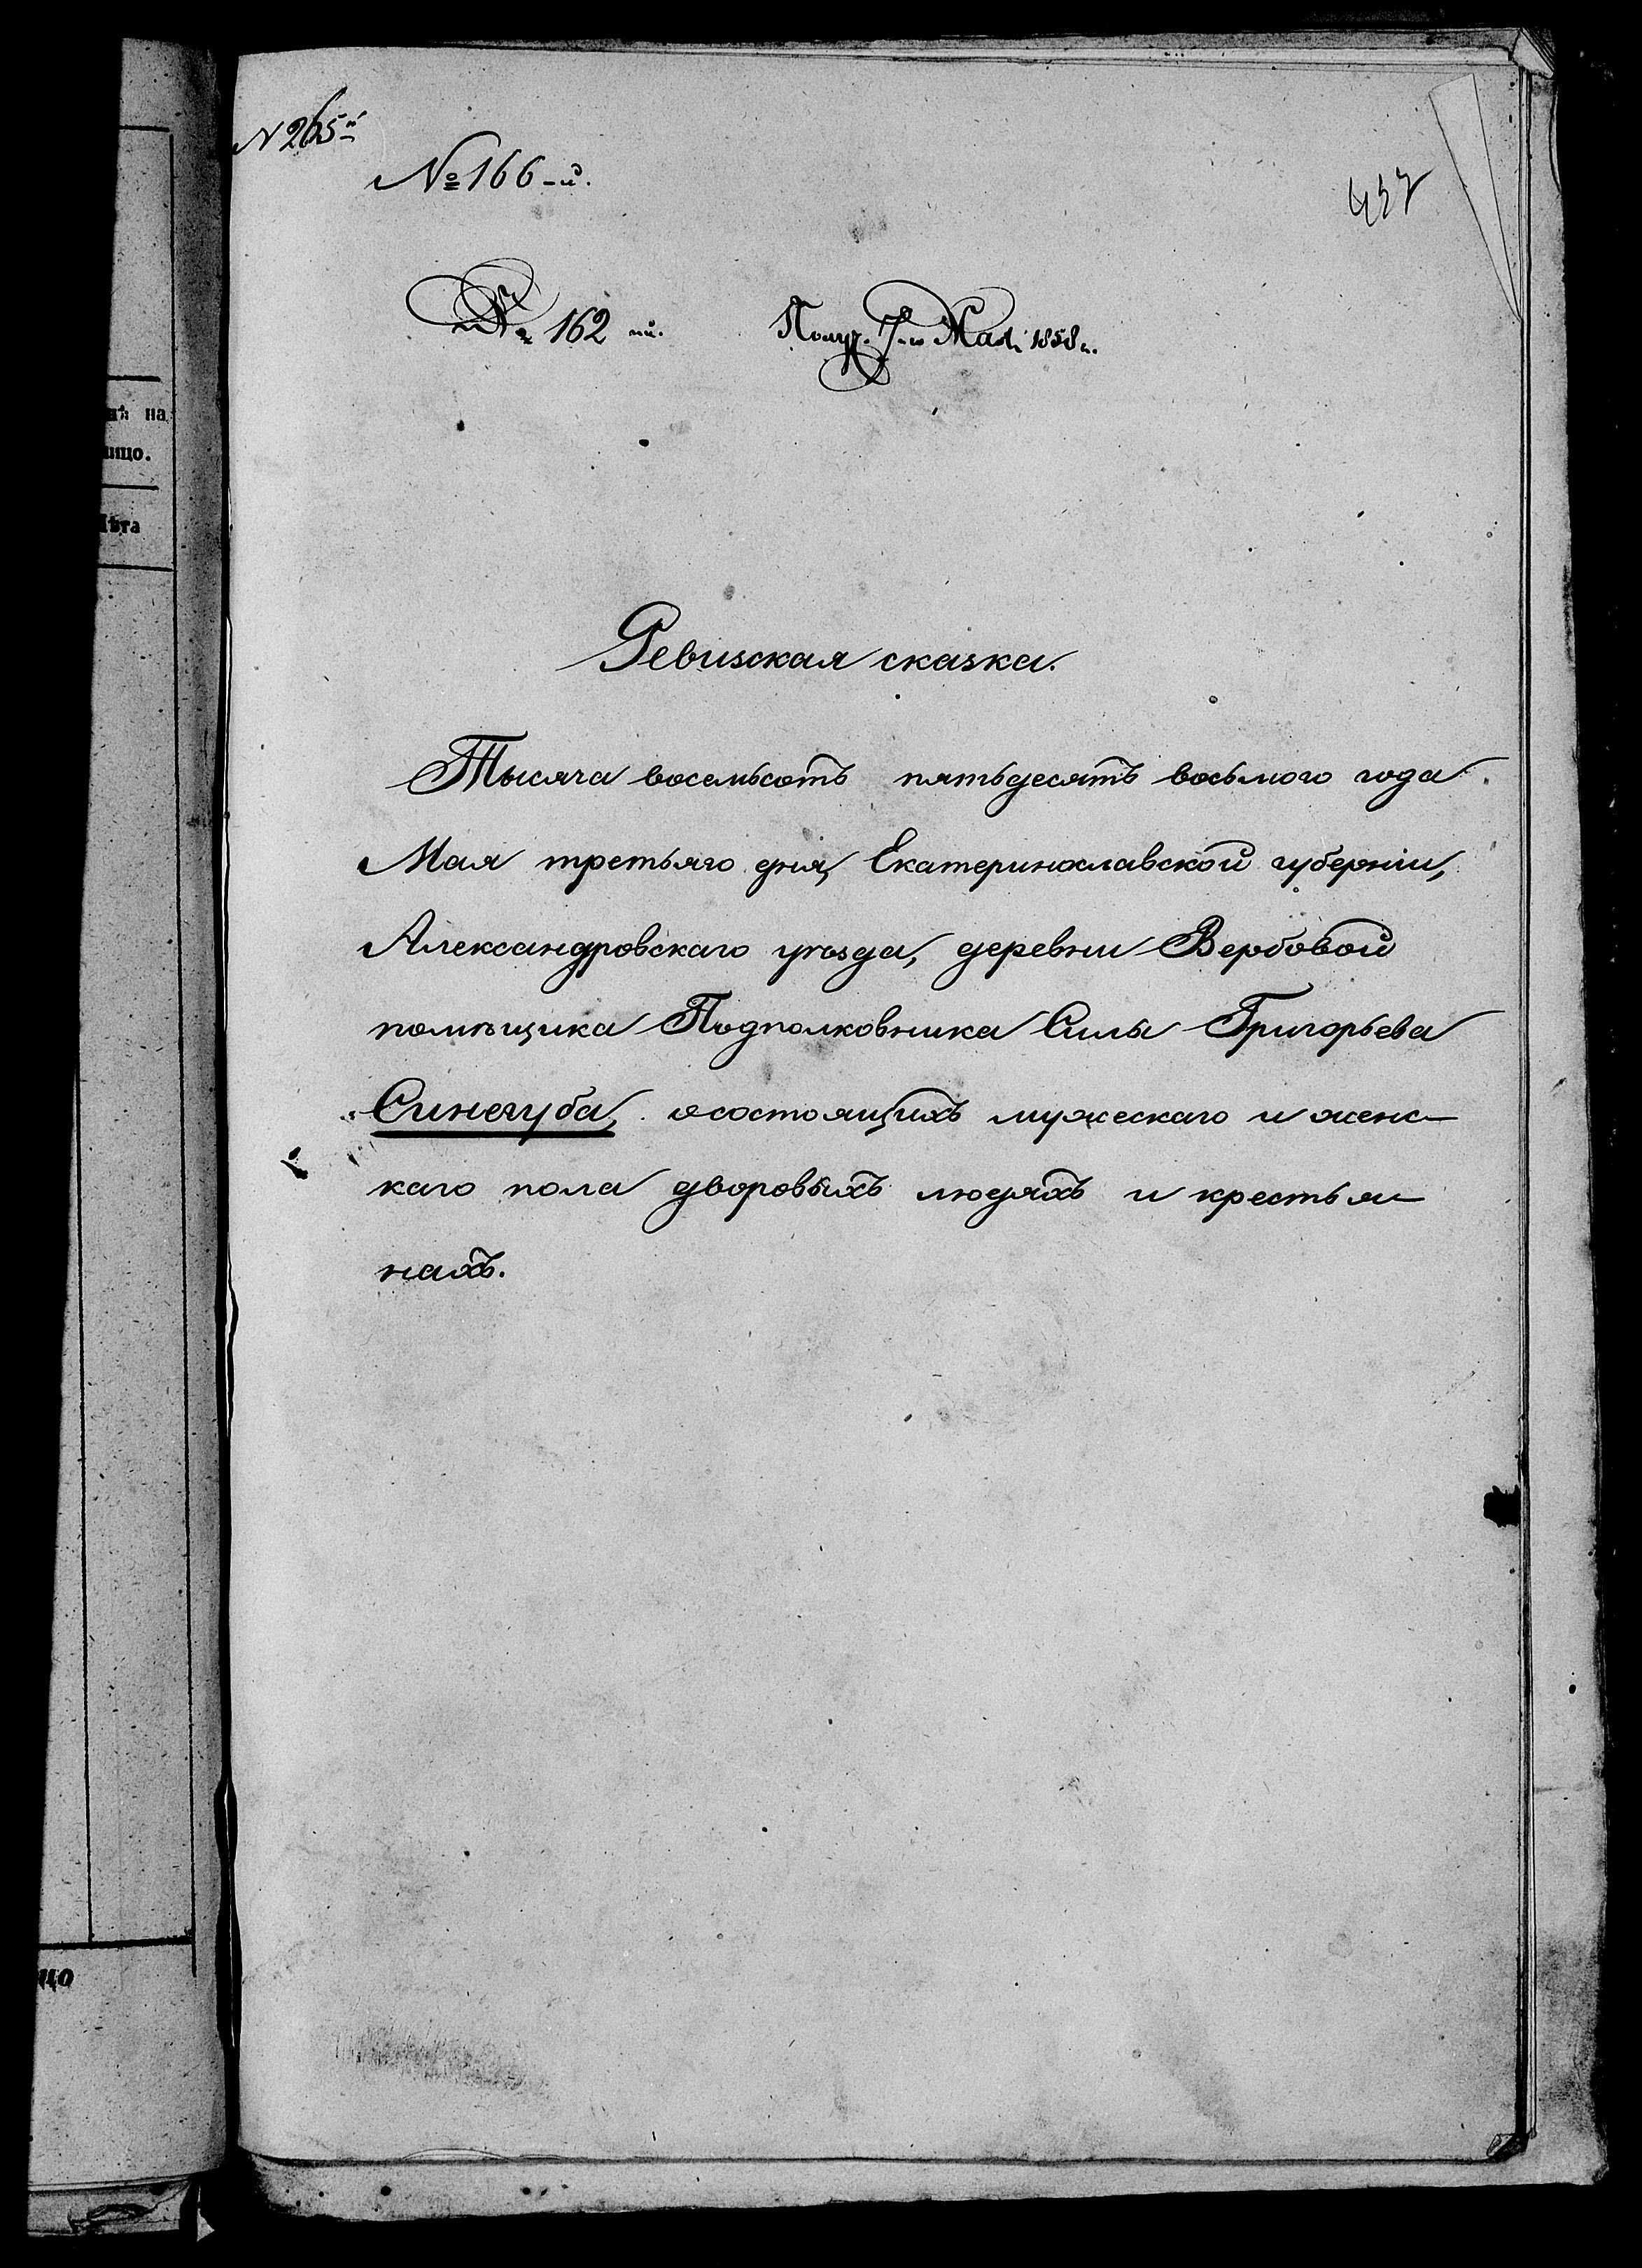 № 265й
№ 166-й.
437
№ 162-ий. Получ. 7-го Мая 1858 г.
нѣ на
лицо.
Лѣта
Ревизская сказка.
Тысяча восемьсотъ пятьдесятъ восьмого года
Мая третьяго дня, Екатеринославской губерніи,
Александровскаго уѣзда, деревни Вербовой
помѣщика Подполковника Силы Григорьева
Синегуба, о состоящихъ мужескаго и женс-
каго пола дворовыхъ людяхъ и крестья-
нахъ.